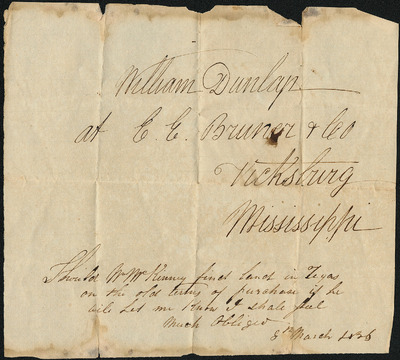 William Dunlap
at C. C. Bruner & Co
Vicksburg
Mississippi
Should Mr McKinney find Land in Texas
on the old terms of purchase if he
will Let me Know I shall feel
Much Obliged
8th March 1836